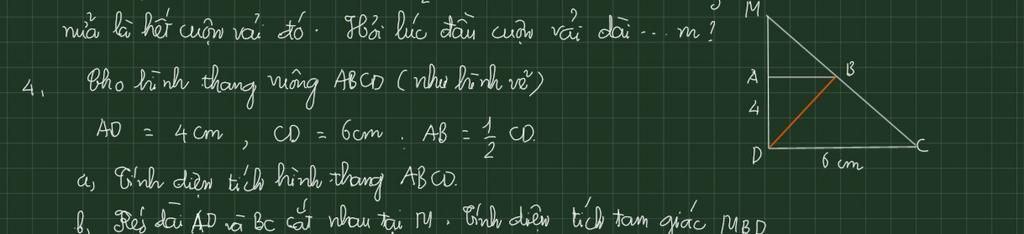 nữa là hết cuộn vải đó. Hỏi lúc đầu cuộn vải dài ... m?
4, Cho hình thang vuông ABCD (như hình vẽ)
AD = 4 cm, CD = 6 cm. AB = 1/2 CD.
a, Tính diện tích hình thang ABCD.
b, Kéo dài AD và BC cắt nhau tại M. Tính diện tích tam giác MBD
M
A
B
4
D
6 cm
C